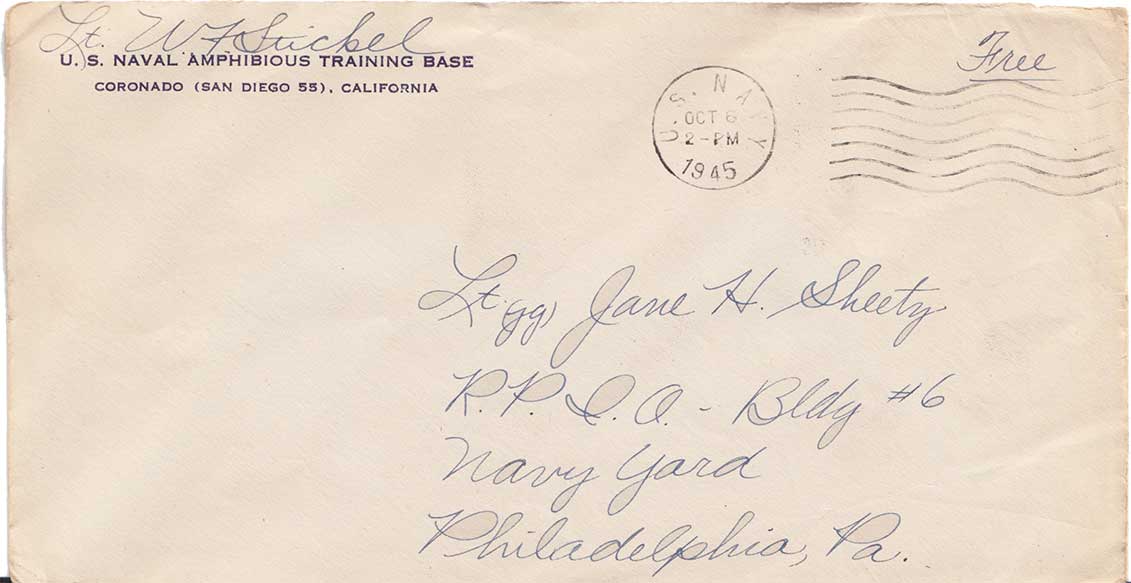 Lt. W F Stickel
U. S. NAVAL AMPHIBIOUS TRAINING BASE
CORONADO (SAN DIEGO 55), CALIFORNIA
Free
U. S. NAVY
OCT 6
2-PM
1945
Lt (jg) Jane H. Sheetz
R. P. I. O. - Bldg #6
Navy Yard
Philadelphia, Pa.